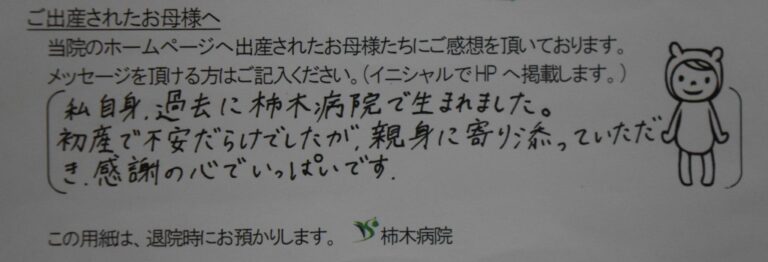 ご出産されたお母様へ
当院のホームページへ出産されたお母様たちにご感想を頂いております。
メッセージを頂ける方はご記入ください。(イニシャルでHPへ掲載します。)
私自身、過去に柿木病院で生まれました。
初産で不安だらけでしたが、親身に寄り添っていただ
き、感謝の心でいっぱいです。
この用紙は、退院時にお預かりします。 柿木病院